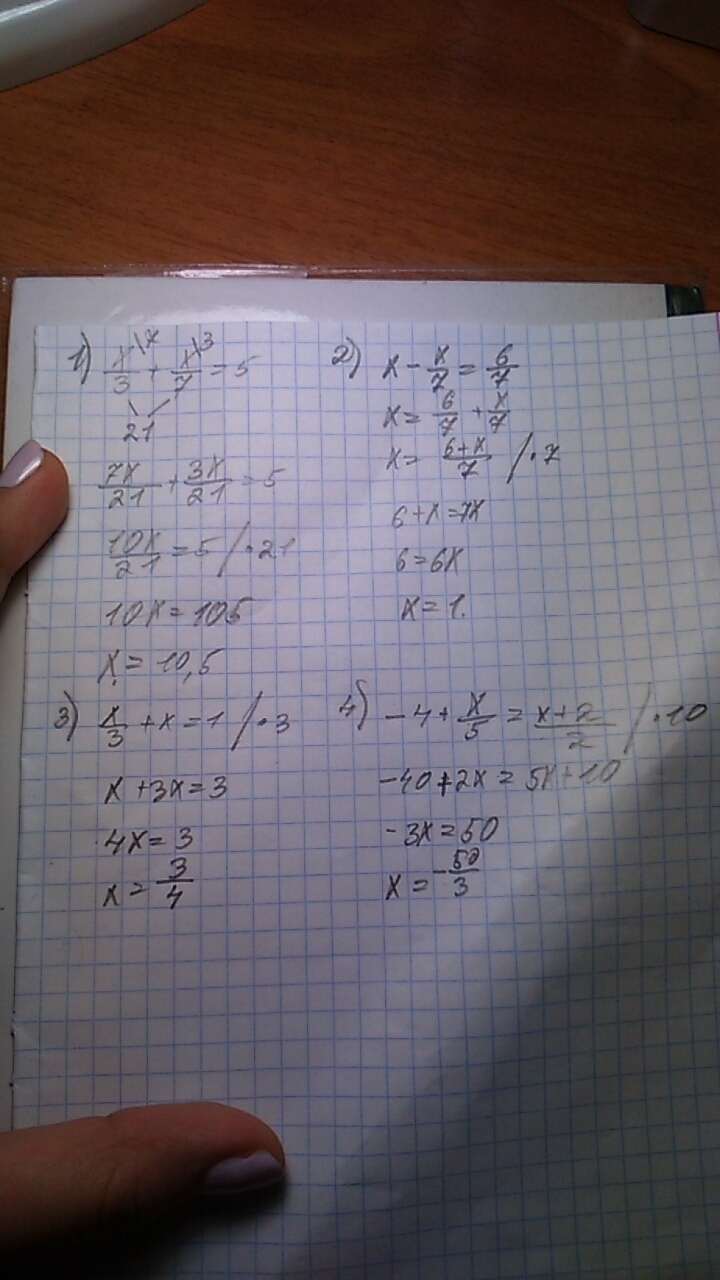 1) x\7/3 + x\3/7 = 5
21
7x/21 + 3x/21 = 5
10x/21 = 5 / · 21
10x = 105
x = 10,5
2) x - x/7 = 6/7
x = 6/7 + x/7
x = 6+x/7 / · 7
6 + x = 7x
6 = 6x
x = 1.
3) x/3 + x = 1 / · 3
x + 3x = 3
4x = 3
x = 3/4
4) -4 + x/5 = x+2/2 / · 10
-40 + 2x = 5x + 10
-3x = 50
x = -50/3